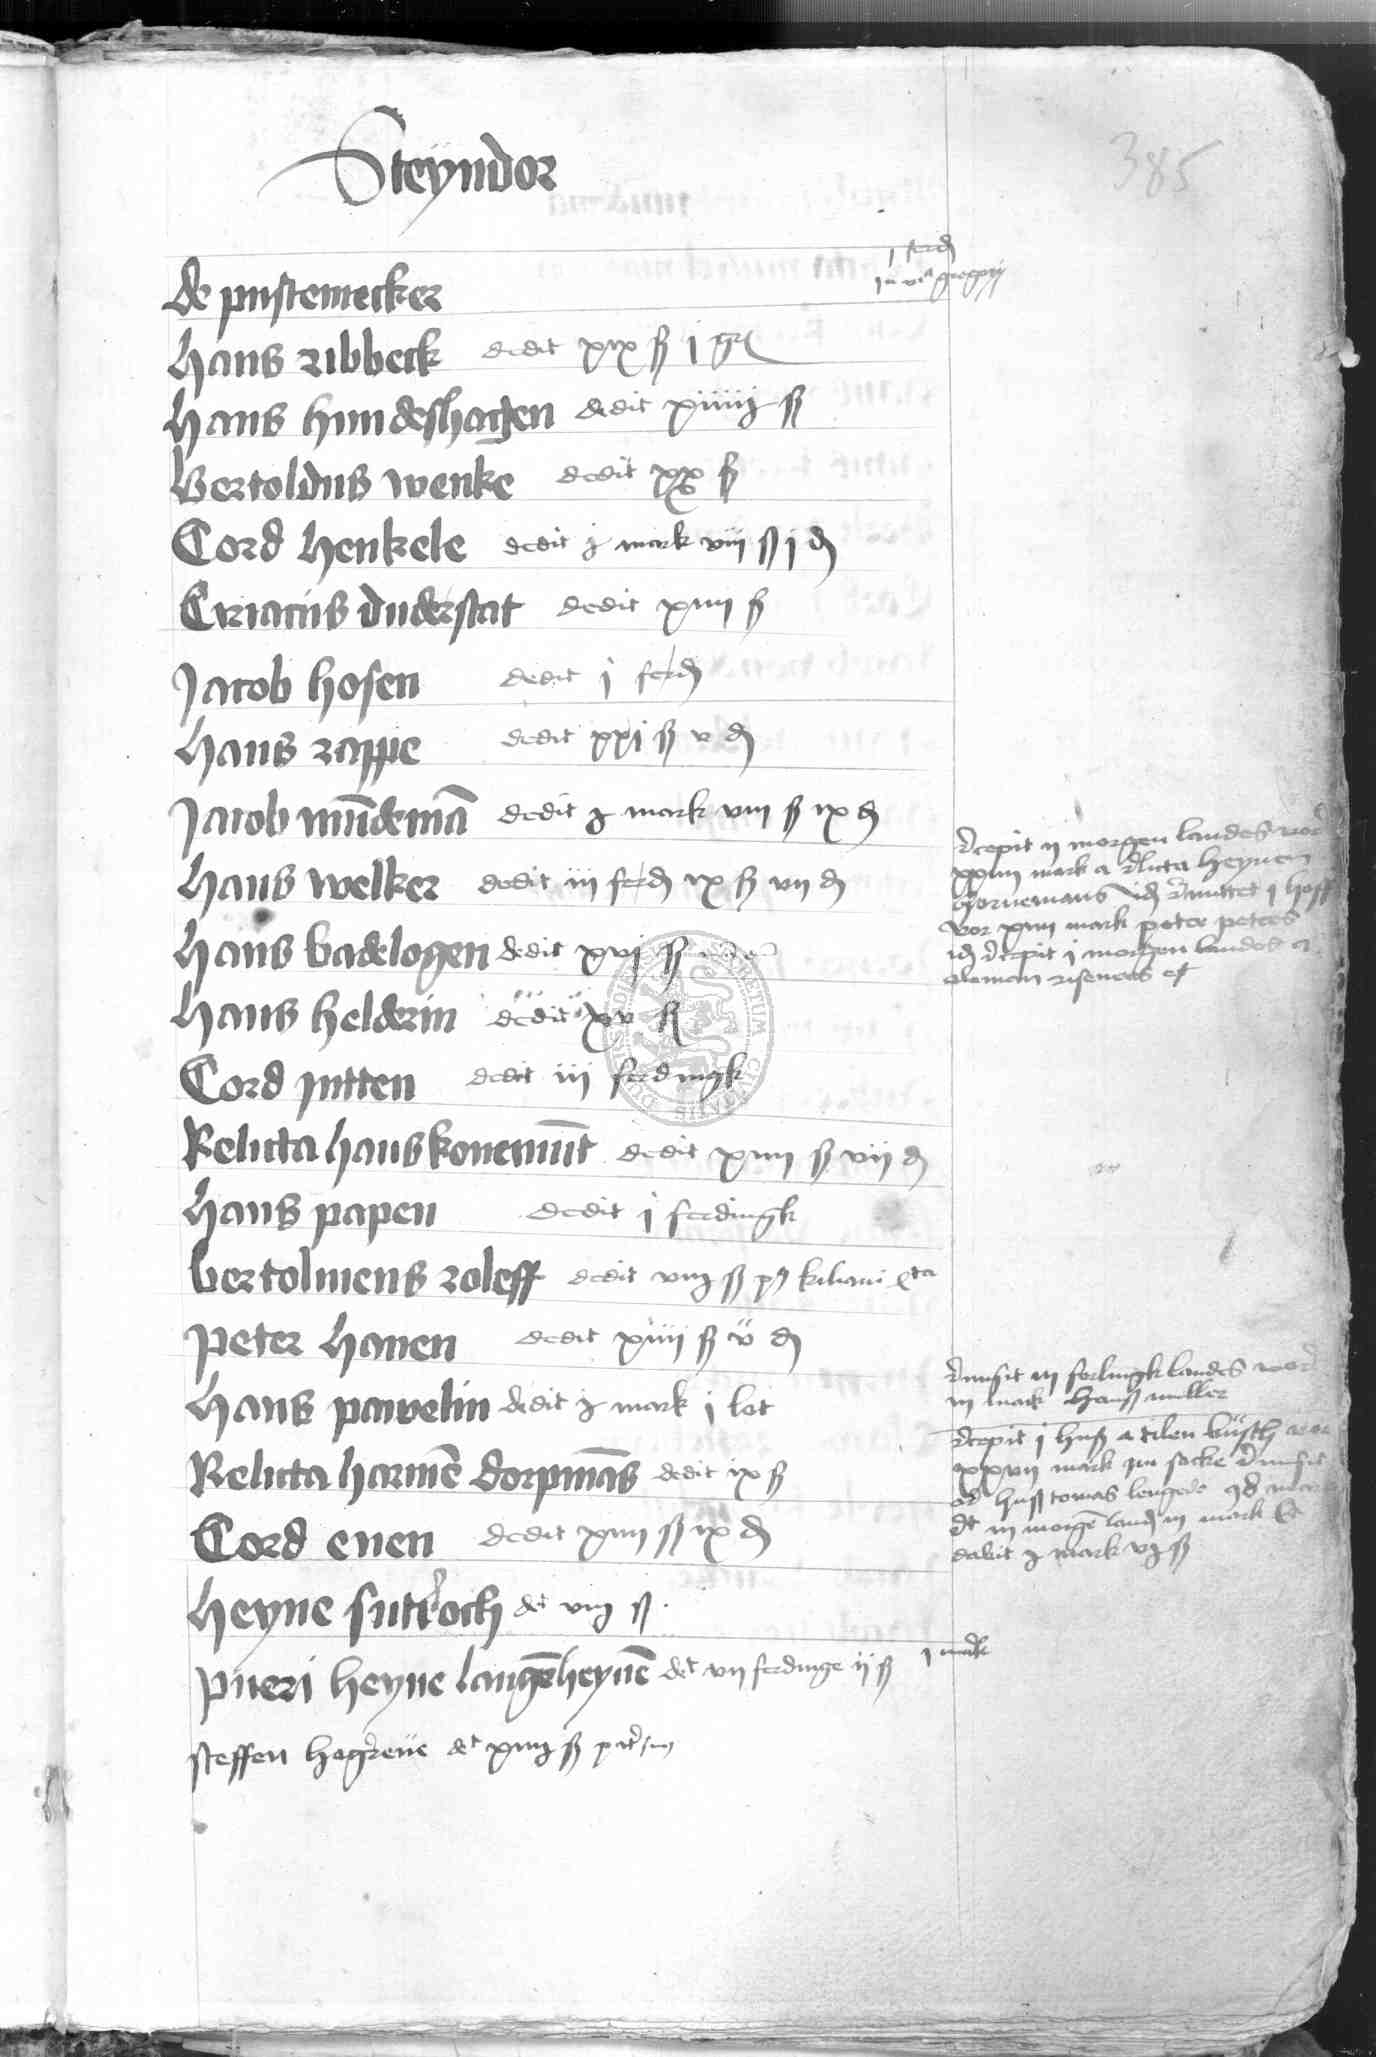 Steyndor
385
de pustemecker j ferd
in vi^a gregorij
Hans zibbeck dedit xix ß j gr
Hans hundeshagen dedit xiiiij ß
Bertoldus wenke dedit xx ß
Cord henkele dedit j mark viij ß j d
Ciriacus duderstat dedit xiiii ß
Jacob hosen dedit j ferd
Hans zappe dedit xxj ß v d
Jacob mūdemā dedit j mark viii ß ix d
Hans welker dedit iij ferd ix ß vij d
Hans badelogen dedit xvj ß
Hans helderin dedit xv ß
Cord jutten dedit iij ferdingk
Relicta hans konemūt dedit xiiii ß vij d
Hans papen dedit j ferdingk
bertolmeus zoleff dedit viij ß kiliani
Peter hanen dedit xiiij ß v d
Hans pawelin dedit j mark j lot
Relicta harmē dorpmās dedit ix ß
Cord euen dedit xiiii ß ix d
Heyne suttroch dt viij ß
Pueri heyne langēheynē dt vij ferdinge ij ß j mark
steffen hogreue dt xiiij ß
recepit ij morgen landes vor
xxiiii mark a relicta heynen
hornemans j hoff
vor xiiii mark peter peters
recepit j morgen landes a
clemen
iij ferlingk landes vor
iij mark hanß muller
recepit j huß a tilen
xxvij mark jm sacke
huß tomas lengede
iij morgē land iij mark
dabit j mark vj ß